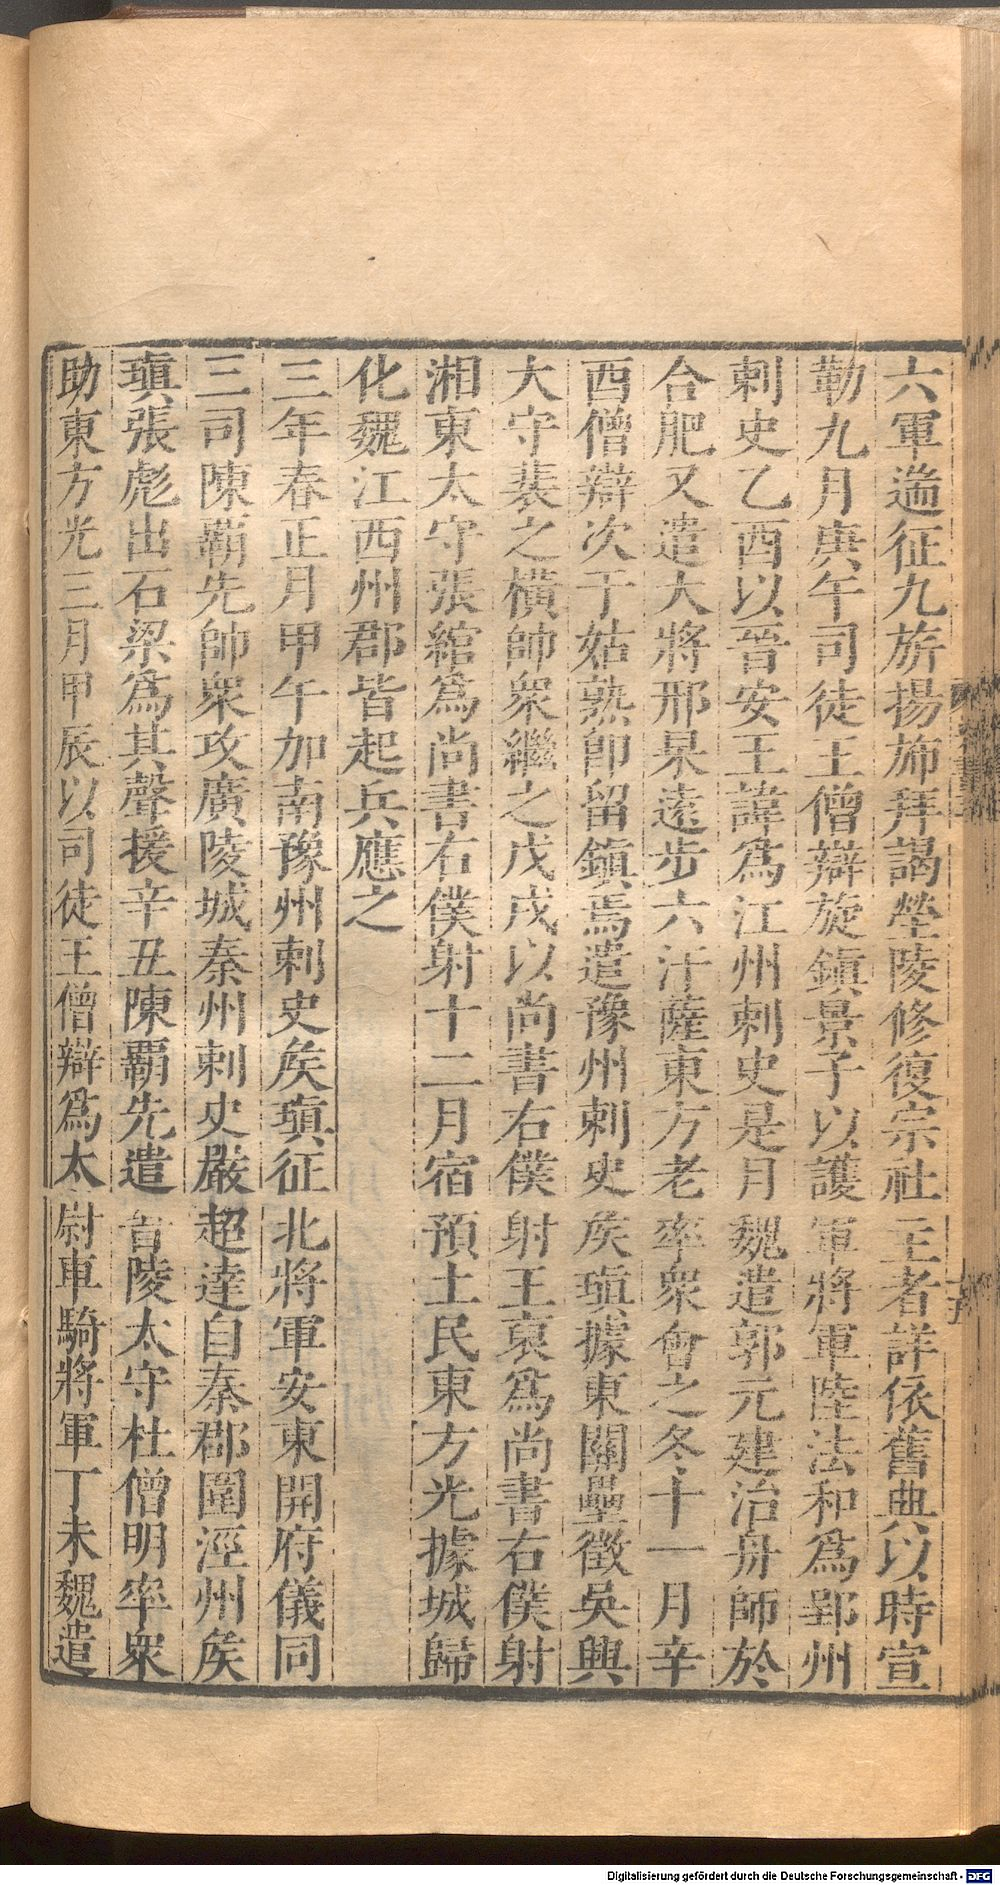 六軍遄征九旂揚斾拜謁塋陵修復宗社王者詳依舊典以時宣
勒九月庚午司徒王僧辯旋鎮景子以護軍將軍陸法和爲郢州
刺史乙酉以晉安王諱爲江州刺史是月魏遣郭元建治舟師於
合肥又遣大將邢杲遠步六汗薩東方老率衆會之冬十一月辛
酉僧辯次于姑熟卽留鎮焉遣豫州刺史矦瑱據東關壘徵吳興
大守裴之橫帥衆繼之戊戌以尚書右僕射王裒爲尚書右僕射
湘東太守張綰爲尚書右僕射十二月宿預土民東方光據城歸
化魏江西州郡皆起兵應之
三年春正月甲午加南豫州刺史矦瑱征北將軍安東開府儀同
三司陳霸先帥衆攻廣陵城秦州刺史嚴超達自秦郡圍涇州矦
瑱張彪出石梁爲其聲援辛丑陳霸先遣晉陵太守杜僧明率衆
助東方光三月甲辰以司徒王僧辯爲太尉車騎將軍丁未魏遣
Digitalisierung gefördert durch die Deutsche Forschungsgemeinschaft - DFG